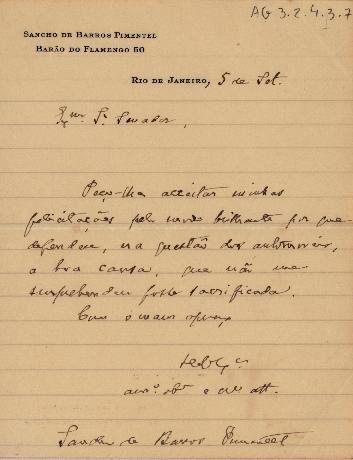 AG 3.2.4.3.7
SANCHO DE BARROS PIMENTEL
BARÃO DO FLAMENGO 50
RIO DE JANEIRO, 5 de Set.
Exmo. Sr. Senador,
Peço-lhe acceitar minhas
felicitações pelo modo brilhante por que
defendeu, na questão dos
a boa causa, que não me
surprehendeu fosse sacrificada.
Com o maior apreço
amo. obr. e cro. att.
Sancho de Barros Pimentel